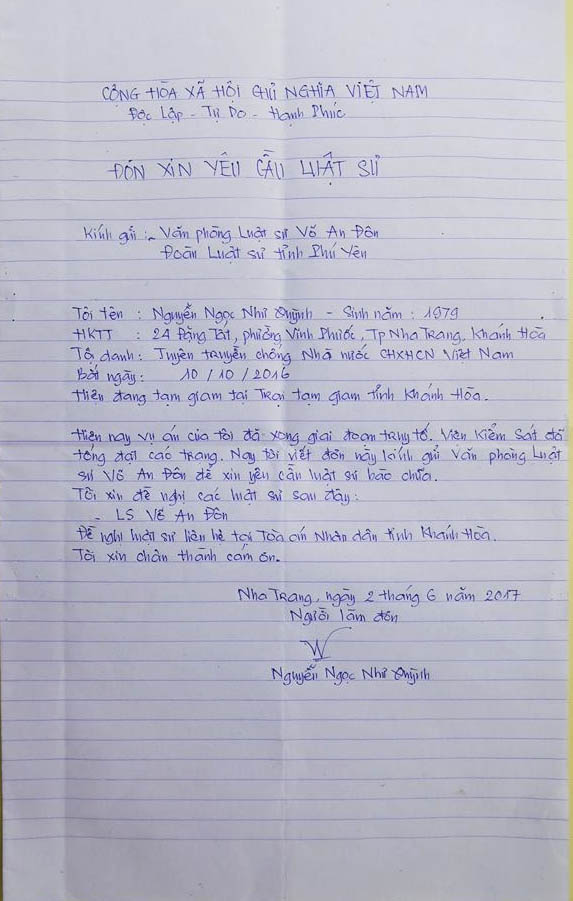 CỘNG HÒA XÃ HỘI CHỦ NGHĨA VIỆT NAM
Độc Lập - Tự Do - Hạnh Phúc
ĐƠN XIN YÊU CẦU LUẬT SƯ
Kính gửi :- Văn phòng Luật sư Võ An Đôn
Đoàn Luật sư tỉnh Phú Yên
Tôi tên : Nguyễn Ngọc Như Quỳnh - Sinh năm : 1979
HKTT : 24 Đặng Tất, phường Vĩnh Phước, Tp Nha Trang, Khánh Hòa
Tội danh : Tuyên truyền chống Nhà nước CHXHCN Việt Nam
Bắt ngày : 10 / 10 / 2016
Hiện đang tạm giam tại Trại tạm giam tỉnh Khánh Hòa.
Hiện nay vụ án của tôi đã xong giai đoạn truy tố. Viện Kiểm Sát đã
tống đạt cáo trạng. Nay tôi viết đơn này kính gửi Văn phòng Luật
sư Võ An Đôn để xin yêu cầu luật sư bào chữa.
Tôi xin đề nghị các luật sư sau đây :
- LS Võ An Đôn
Đề nghị luật sư liên hệ tại Tòa án Nhân dân tỉnh Khánh Hòa.
Tôi xin chân thành cảm ơn.
Nha Trang, ngày 2 tháng 6 năm 2017
Người làm đơn
Nguyễn Ngọc Như Quỳnh